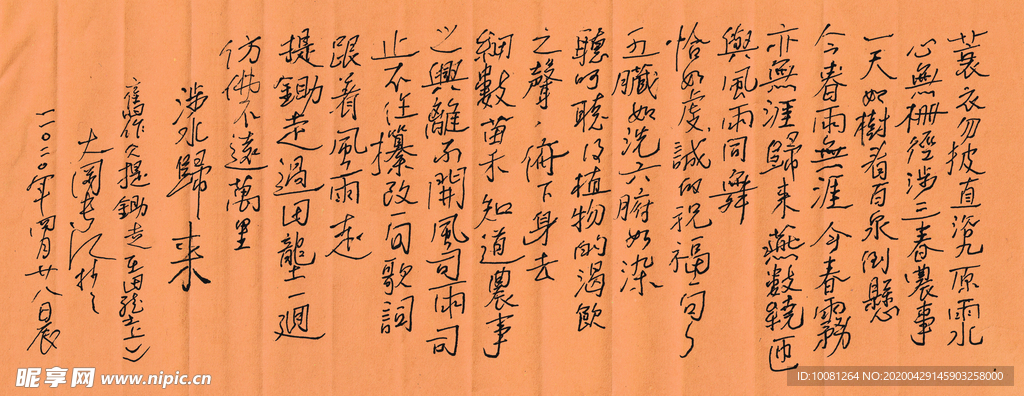 蓑衣勿披直浴九原雨水
心無柵徑涉三春農事
一天如樹看百泉倒懸
今春雨無涯今春霧
亦無涯歸来燕数繞匝
與風雨同舞
恰如虔誠的祝福一句句
五臟如洗六腑如染
聽呵聽佷植物的渴飲
之聲，俯下身去
細數苗禾知道農事
之興離不開風司雨司
止不住攥改一句歌詞
跟着風雨走
提鋤走過田壟一週
仿佛不遠萬里
涉水歸来
舊作《提鋤走在田壟上》
抄之
二〇二〇年四月廿八日晨
昵享网 www.nipic.cn
ID:10081264 NO:20200429145903258000